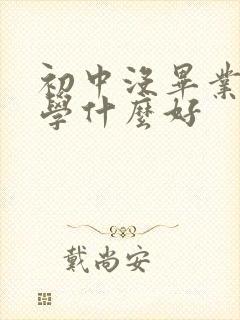 初中沒畢業
學什麼好
戴尚安